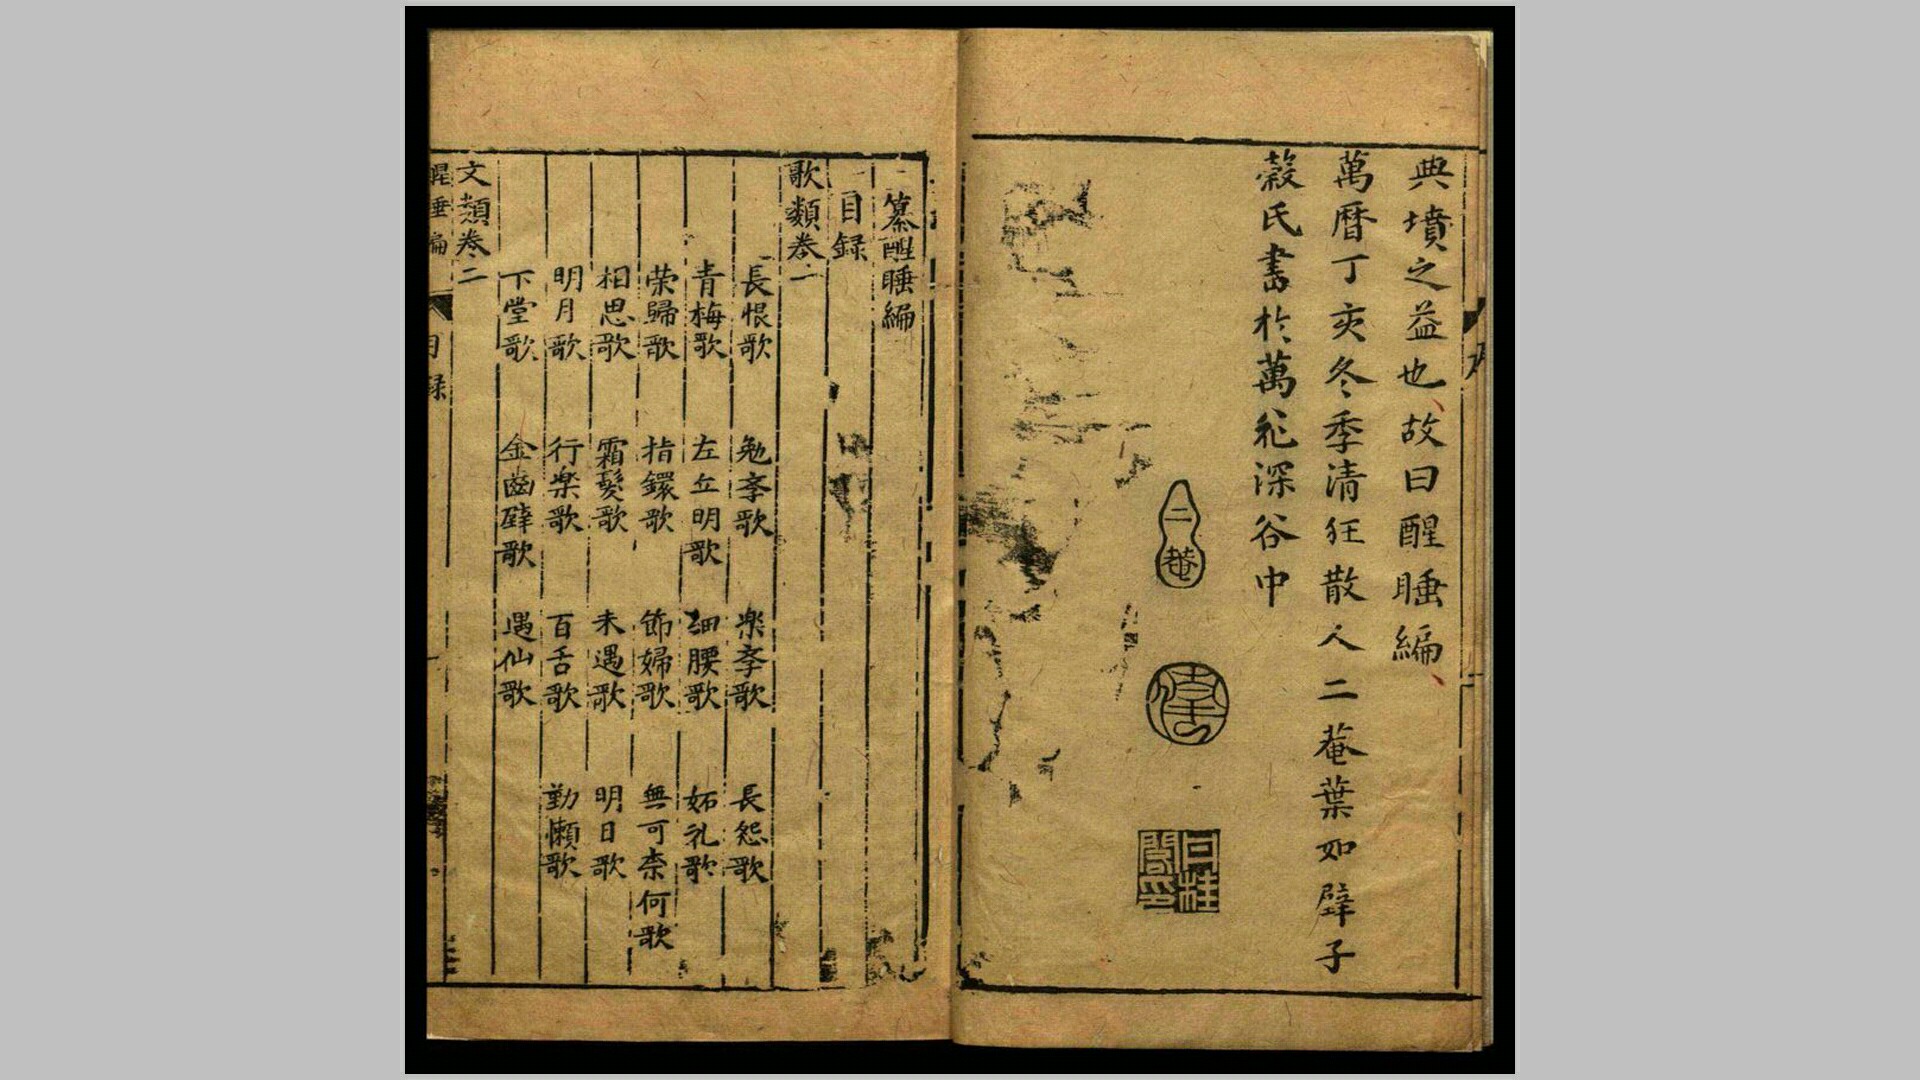 典墳之益也故曰醒睡編
萬曆丁亥冬季清狂散人二菴葉如璧子
穀氏書於萬花深谷中
二菴
纂醒睡編
目録
歌類卷一
長恨歌 勉孝歌 楽孝歌 長怨歌
青梅歌 左丘明歌 細腰歌 妬礼歌
荣歸歌 指鐶歌 節婦歌 無可柰何歌
相思歌 霜髪歌 未遇歌 明日歌
明月歌 行楽歌 百舌歌 勤懶歌
下堂歌 金齒壁歌 遇仙歌
文類卷二
醒睡編 目録